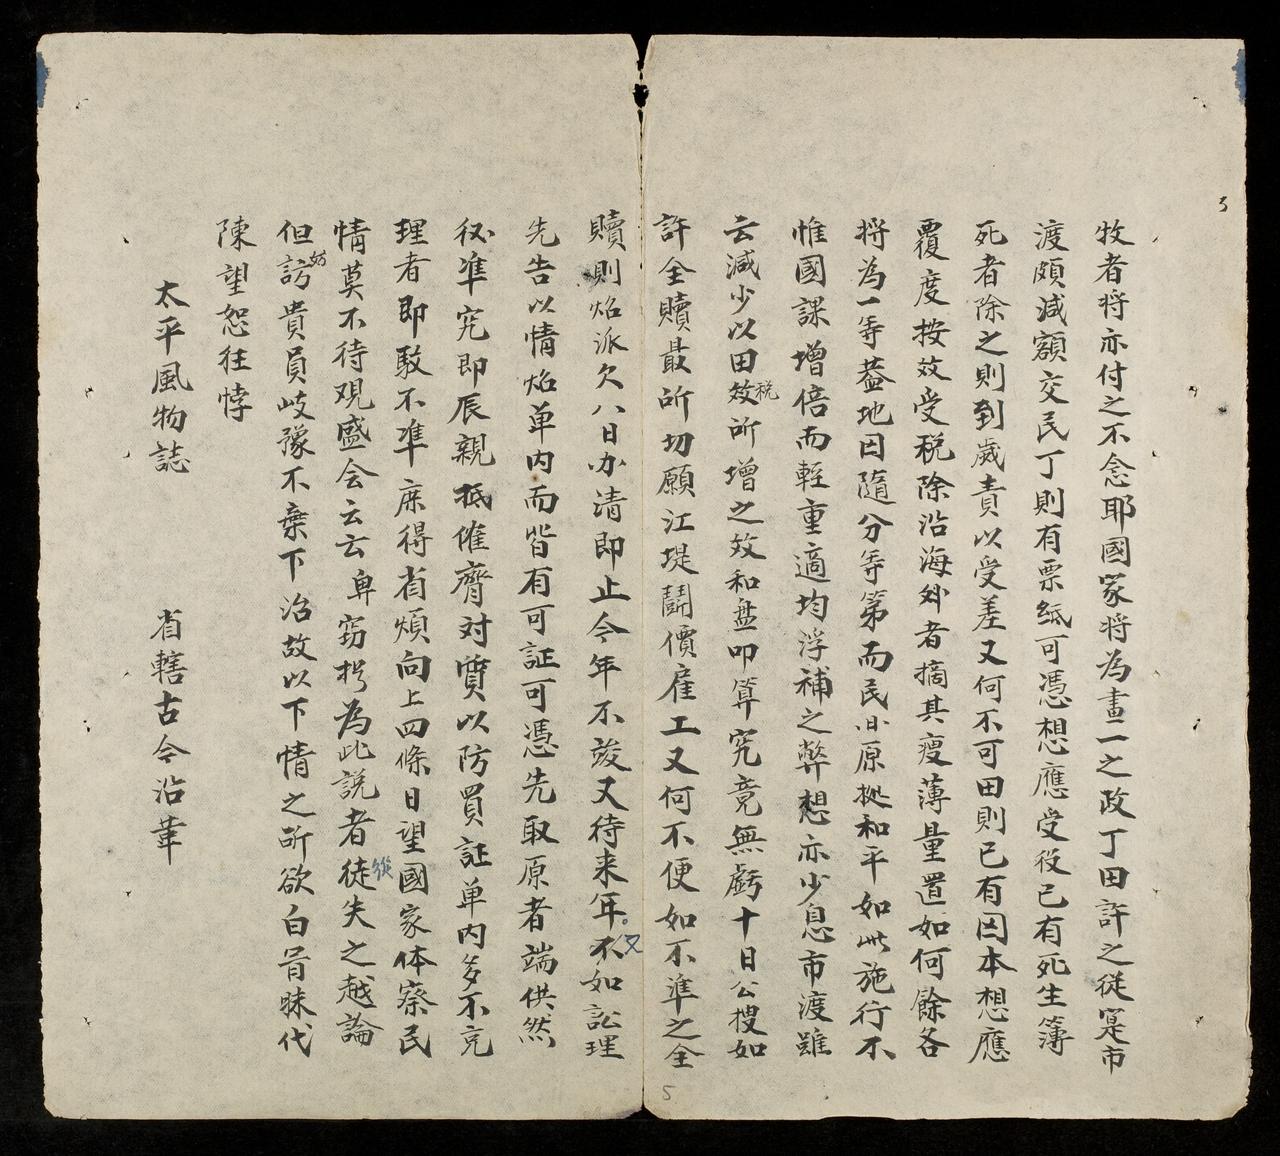 牧者将亦付之不念耶國家将為畫一之政丁田許之從寔市
渡頗減額交民丁則有票紙可憑想應受役已有死生簿
死者除之則到歲責以受差又何不可田則已有因本想應
覆度按效受税除沿海外者摘其瘦薄量置如何餘各
将為一等葢地因隨分等第而民心原拠和平如此施行不
惟國課增倍而輕重適均浮補之弊想亦少息市渡雖
云減少以田效税所增之效和盘叩算究竟無虧十日公搜如
許全贖最所切願江堤鬪價雇工又何不便如不準之全
贖則炤派欠八日办清即止今年不竣又待来年又不如訟理
先告以情炤单内而皆有可証可憑先取原者端供然
後準究即辰親抵催齊対質以防買証单内多不亮
理者即敺不準庶得省煩向上四條日望國家体察民
情莫不待观盛会云云卑窃拶為此説者徒失之越論
但訪貴員岐豫不棄下治故以下情之所欲白冒昧代
陳望恕狂悖
太平風物誌
省轄古今沿革